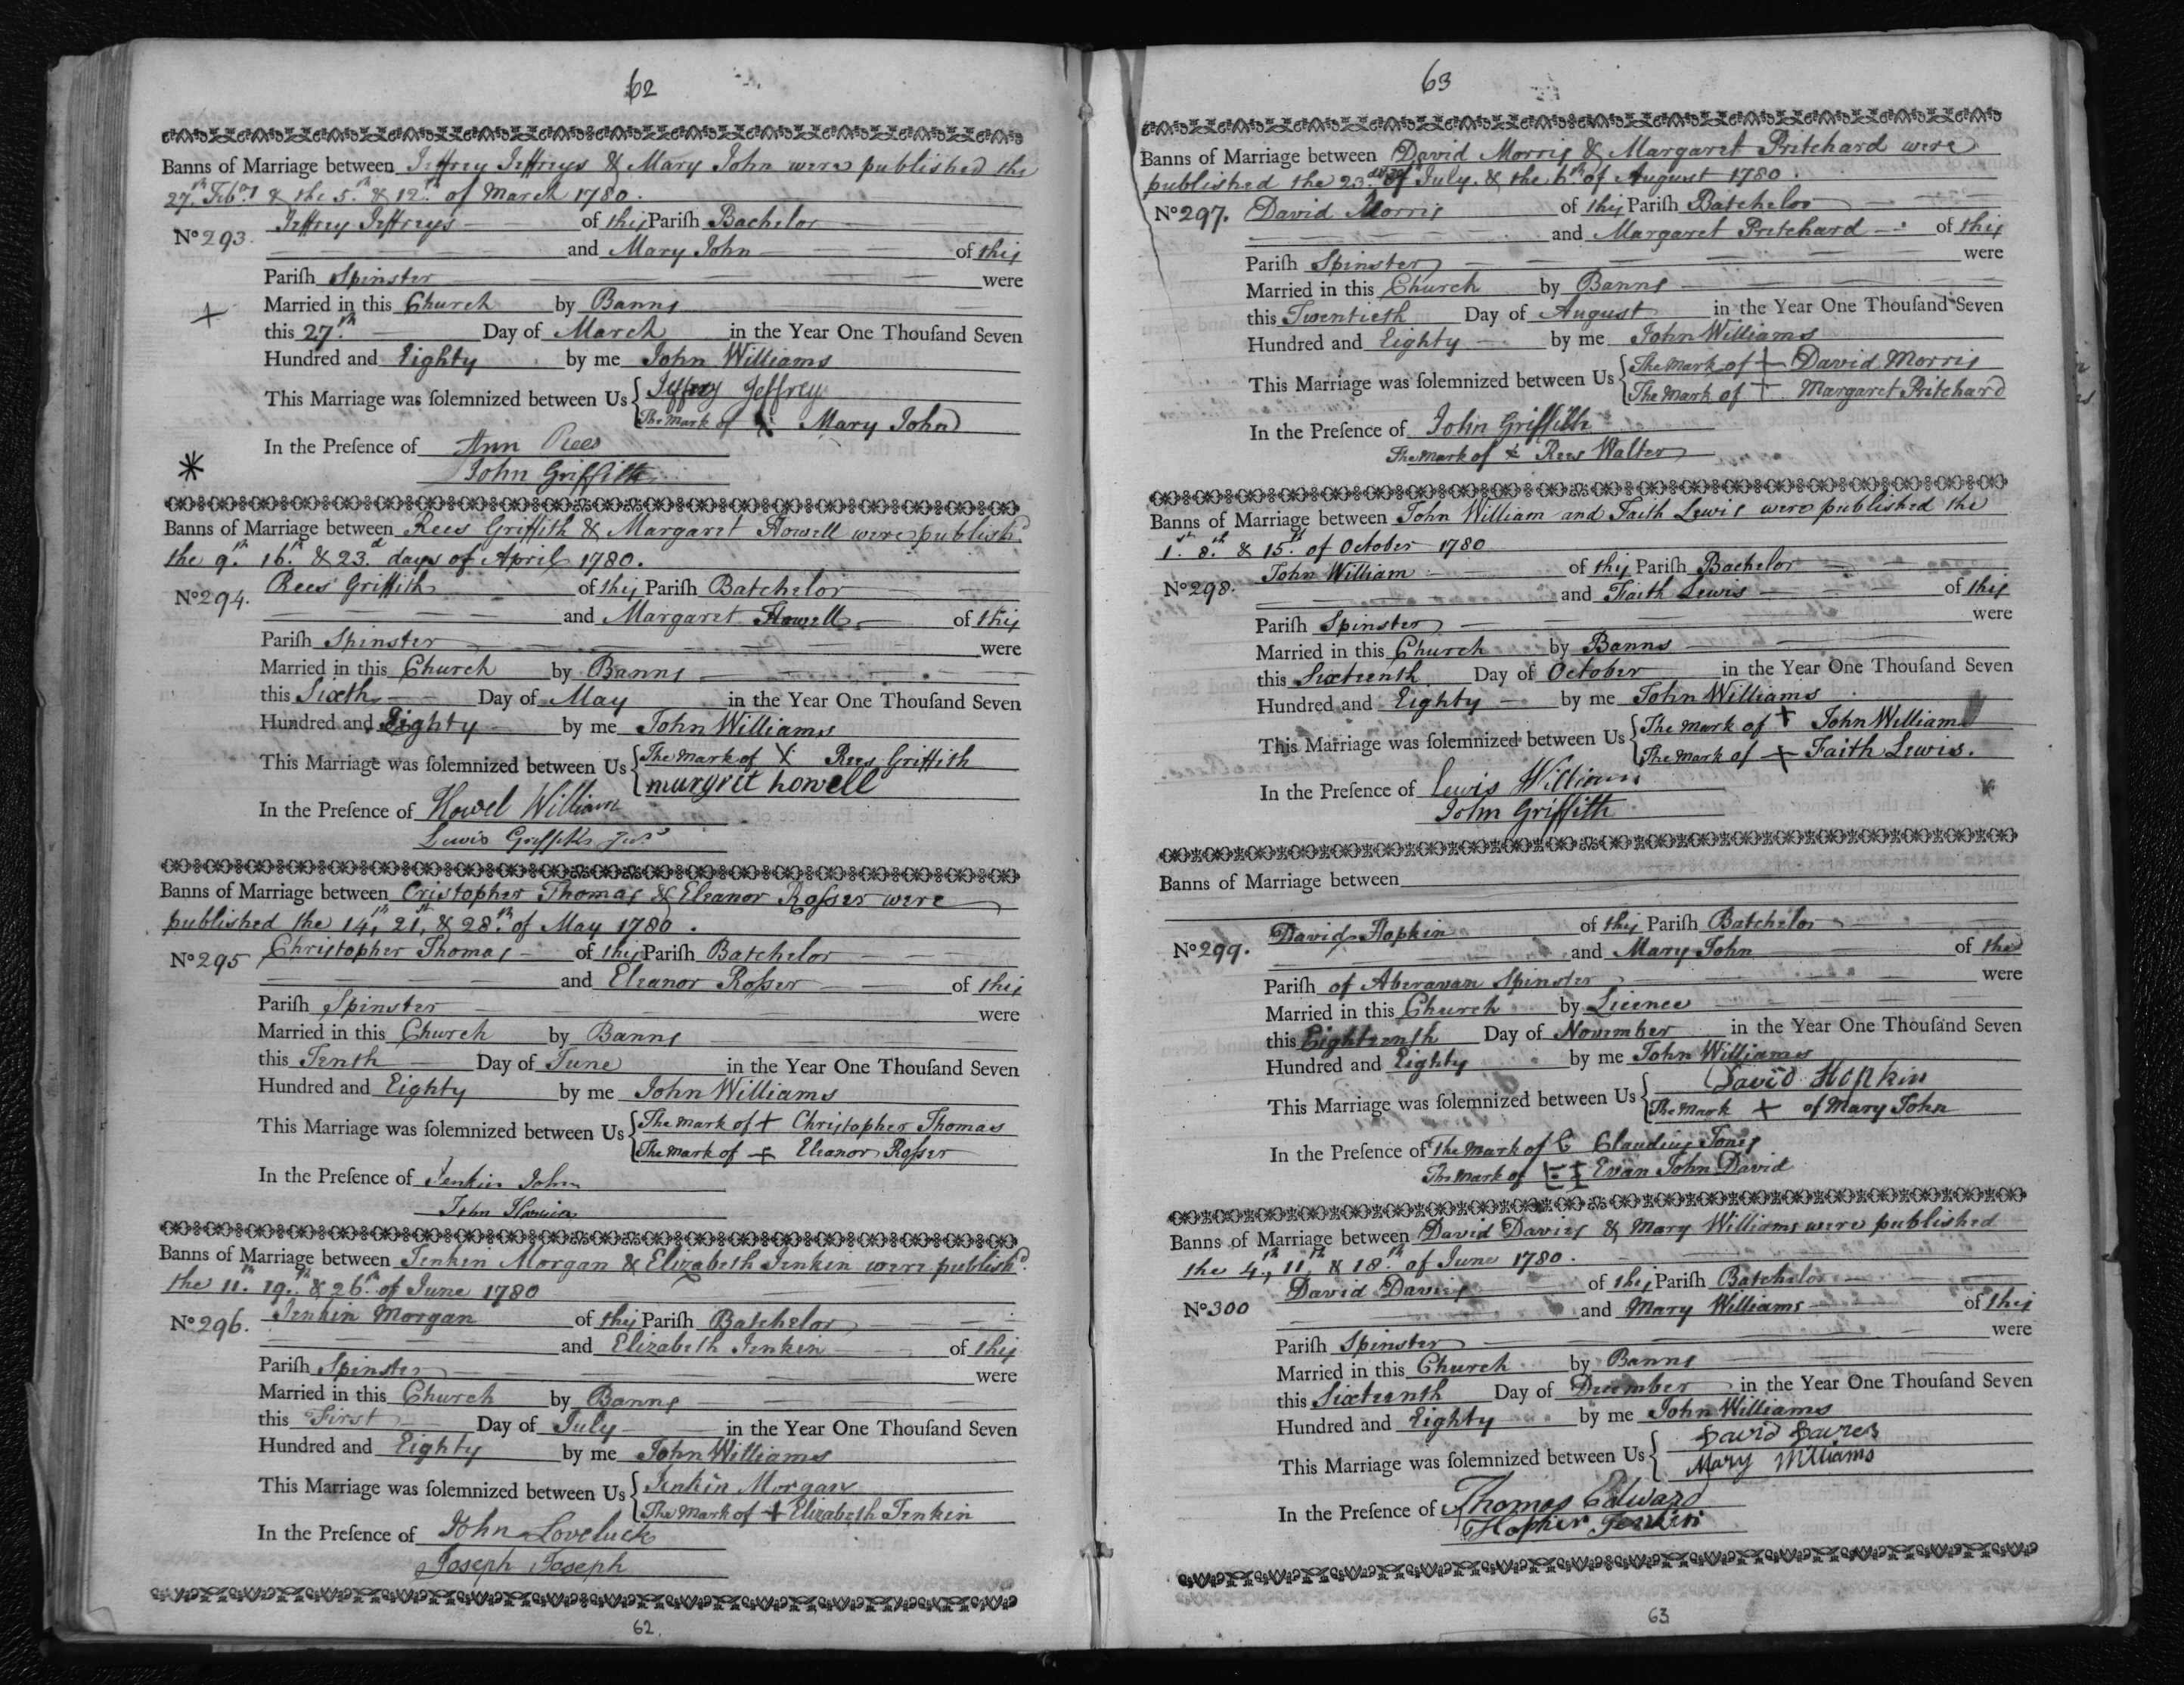 62
Banns of Marriage between Jeffrey Jeffreys & Mary John were published the
27th Feby & the 5th & 12th of March 1780.
Jeffrey Jeffreys of this Pariſh Bachelor
No 293.
and Mary John of this
Pariſh Spinster were
Married in this Church by Banns
this 27th Day of March in the Year One Thouſand Seven
Hundred and Eighty by me John Williams
This Marriage was ſolemnized between Us { Jeffrey Jeffreys
The Mark of X Mary John
In the Preſence of Ann Rees
John Griffith
Banns of Marriage between Rees Griffith & Margaret Howell were publishd
the 9th 16th & 23d days of April 1780.
No 294. Rees Griffith of this Pariſh Batchelor
and Margaret Howell of this
Pariſh Spinster were
Married in this Church by Banns
this Sixth Day of May in the Year One Thouſand Seven
Hundred and Eighty by me John Williams
This Marriage was ſolemnized between Us { The Mark of X Rees Griffith
margret howell
In the Preſence of Howel William
Lewis Griffiths Junr
Banns of Marriage between Cristopher Thomas & Eleanor Roſser were
published the 14th, 21st, & 28th of May 1780.
No 295 Christopher Thomas of this Pariſh Batchelor
and Eleanor Roſser of this
Pariſh Spinster were
Married in this Church by Banns
this Tenth Day of June in the Year One Thouſand Seven
Hundred and Eighty by me John Williams
This Marriage was ſolemnized between Us { The Mark of + Christopher Thomas
The Mark of + Eleanor Roſser
In the Preſence of Jenkin John
John
Banns of Marriage between Jenkin Morgan & Elizabeth Jenkin were publishd
the 11th 19th & 26th of June 1780
No 296. Jenkin Morgan of this Pariſh Batchelor
and Elizabeth Jenkin of this
Pariſh Spinster were
Married in this Church by Banns
this First Day of July in the Year One Thouſand Seven
Hundred and Eighty by me John Williams
This Marriage was ſolemnized between Us { Jenkin Morgan
The Mark of + Elizabeth Jenkin
In the Preſence of John Loveluck
Joseph Joseph
62.
63
Banns of Marriage between David Morris & Margaret Pritchard were
published the 23d of July & the 6th of August 1780.
No 297. David Morris of this Pariſh Batchelor
and Margaret Pritchard of this
Pariſh Spinster were
Married in this Church by Banns
this Twentieth Day of August in the Year One Thouſand Seven
Hundred and Eighty by me John Williams
This Marriage was ſolemnized between Us { The Mark of + David Morris
The Mark of + Margaret Pritchard
In the Preſence of John Griffith
The mark of x Rees Walter
Banns of Marriage between John William and Faith Lewis were published the
1st 8th & 15th of October 1780
No 298. John William of this Pariſh Bachelor
and Faith Lewis of this
Pariſh Spinster were
Married in this Church by Banns
this Sixteenth Day of October in the Year One Thouſand Seven
Hundred and Eighty by me John Williams
This Marriage was ſolemnized between Us { The Mark of + John William
The Mark of + Faith Lewis.
In the Preſence of Lewis William
John Griffith
Banns of Marriage between
No 299. David Hopkin of this Pariſh Batchelor
and Mary John of the
Pariſh of Aberavan Spinster were
Married in this Church by Licence
this Eighteenth Day of November in the Year One Thouſand Seven
Hundred and Eighty by me John Williams
This Marriage was ſolemnized between Us { David Hopkin
The Mark + of Mary John
In the Preſence of The Mark of C Claudius Jones
The Mark of Evan John David
Banns of Marriage between David Davies & Mary Williams were published
the 4th, 11th, & 18th of June 1780.
No 300 David Davies of this Pariſh Batchelor
and Mary Williams of this
Pariſh Spinster were
Married in this Church by Banns
this Sixteenth Day of December in the Year One Thouſand Seven
Hundred and Eighty by me John Williams
This Marriage was ſolemnized between Us { David Davies
Mary Williams
In the Preſence of Thomas Edward
Hopkin Jenkin
63